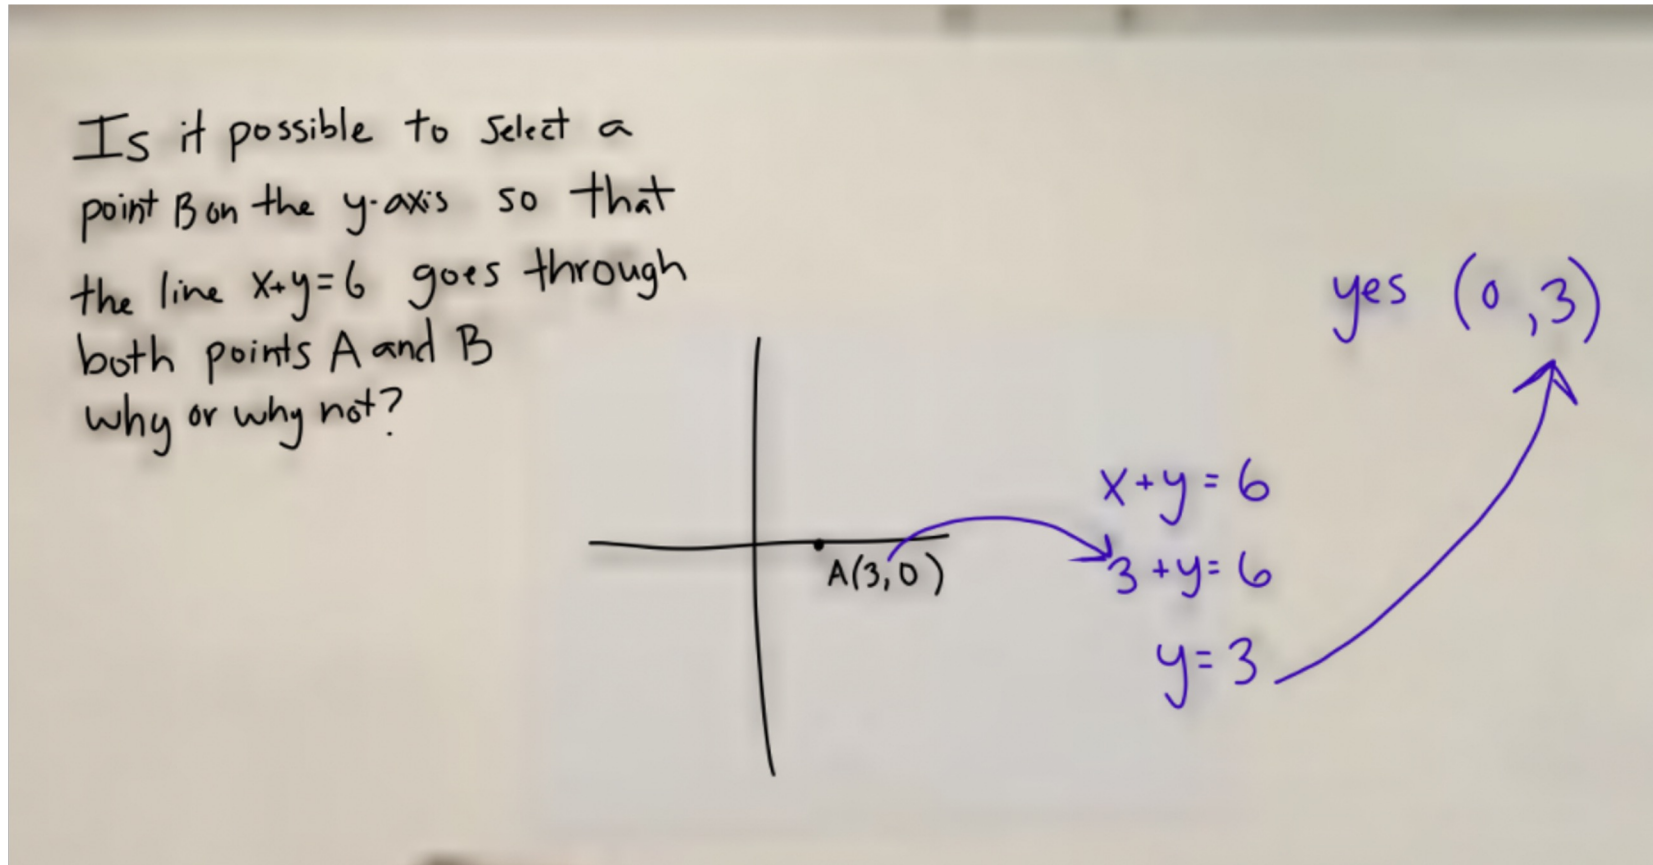 Is it possible to select a
point B on the y-axis so that
the line x+y=6 goes through
both points A and B
why or why not?
A(3,0)
x+y=6
3+y=6
y=3
yes (0,3)